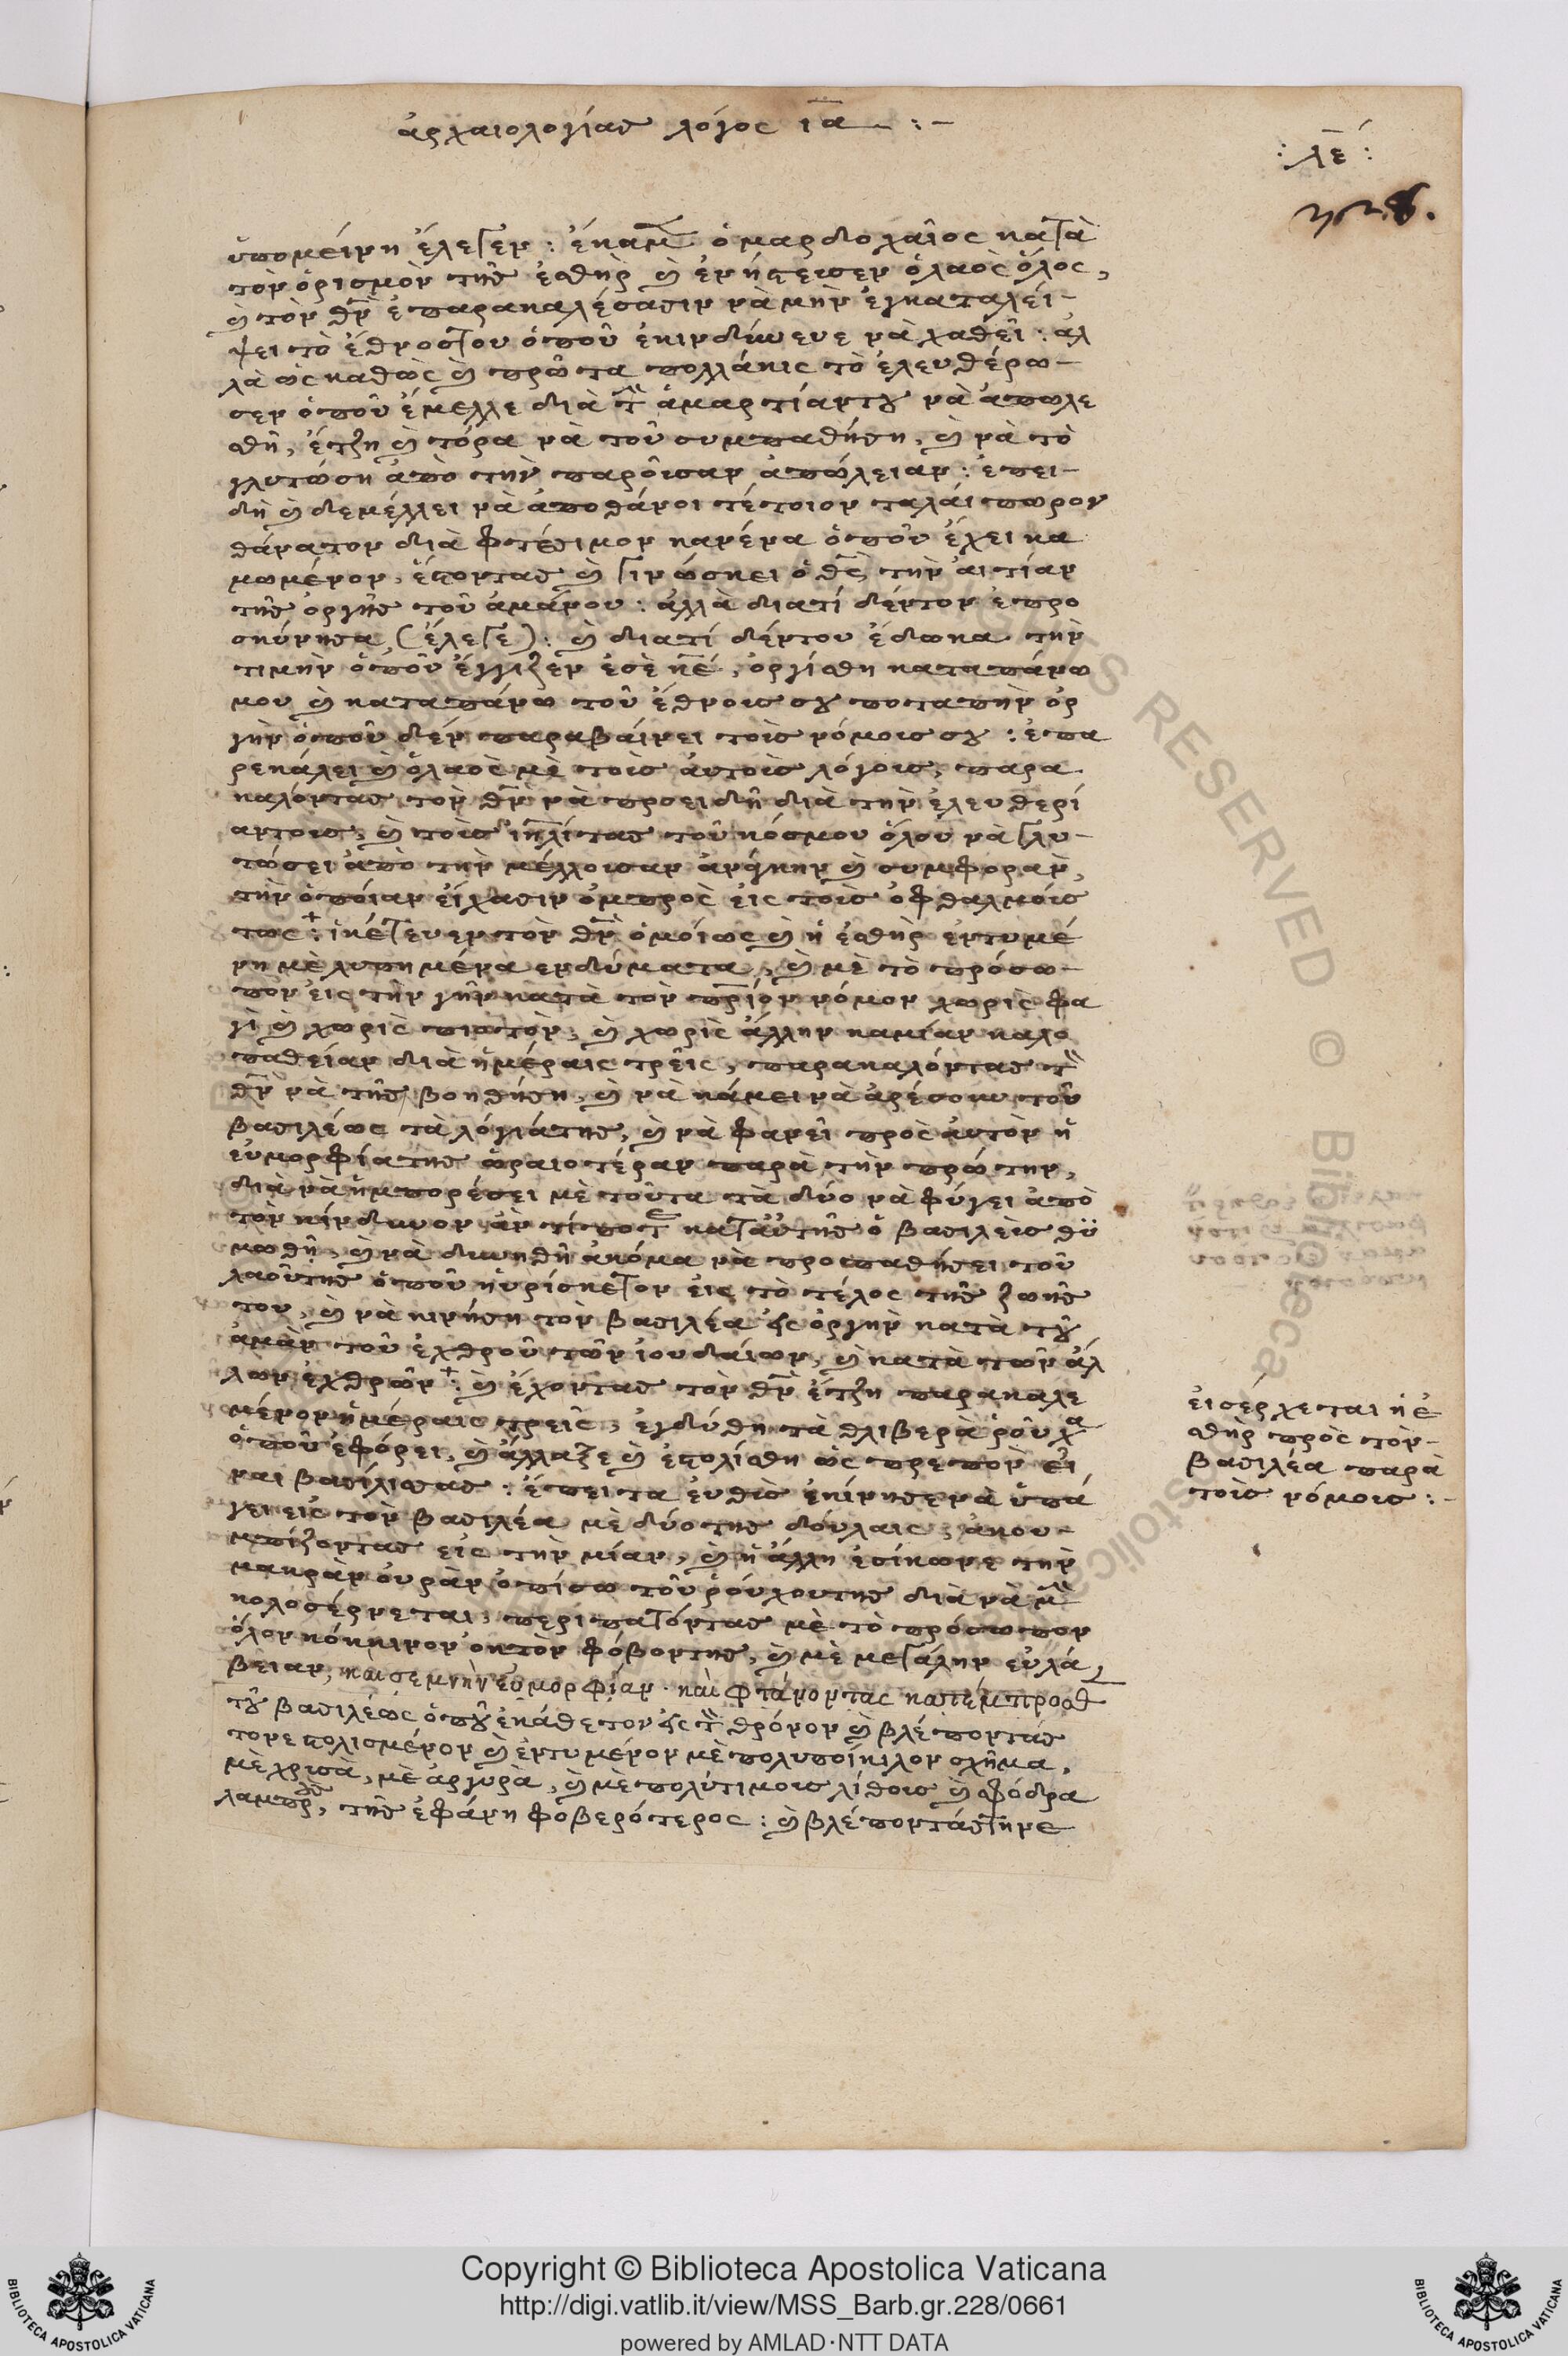 ἀρχαιολογίας λόγος ια :-
: λε :
ὑπομείνη ἔλεγεν : ἔκαμε ὁ μαρδοχαῖος κατὰ
τὸν ὁρισμὸν τῆς ἐσθὴρ καὶ ἐνήστευσεν ὁ λαὸς ὅλος,
καὶ τὸν θν ἐπαρακαλέσασιν νὰ μὴν ἐγκαταλεί-
ψει τὸ ἔθνος του ὁποῦ ἐκινδύνευε νὰ χαθεῖ : ἀλ
λὰ ὡς καθὼς καὶ πρῶτα πολλάκις τὸ ἐλευθέρω-
σεν ὁποῦ ἔμελλε διὰ τὴν ἁμαρτίαν του νὰ ἀπωλε
σθῆ, ἔτζη καὶ τόρα νὰ τοῦ συμπαθήση, καὶ νὰ τὸ
γλυτώση ἀπὸ τὴν παροῦσαν ἀπώλειαν : ἐπει-
δὴ καὶ δὲ μέλλει νὰ ἀποθάνοι τέτοιον ταλαίπωρον
θάνατον διὰ φτέσιμον κανένα ὁποῦ ἔχει κα
μωμένον, ἔστοντας καὶ γινώσκει ὁ θς τὴν αἰτίαν
τῆς ὀργῆς τοῦ ἀμάνου : ἀλλὰ διατί δέν τον ἐπρο
σκύνησα (ἔλεγε) : καὶ διατί δέν του ἔδωκα τὴν
τιμὴν ὁποῦ ἔγγιζεν ἐσὲ κε, ὀργίσθη καταπάνω
μου καὶ καταπάνω τοῦ ἔθνους σου ποταπὴν ὀρ
γὴν ὁποῦ δὲν παραβαίνει τοὺς νόμους σου : ἐπα
ρεκάλει καὶ ὁ λαὸς μὲ τοὺς αὐτοὺς λόγους, παρα
καλόντας τὸν θν νὰ προειδῆ διὰ τὴν ἐλευθερί
αν τους, καὶ τοὺς ἰηλίτας τοῦ κόσμου ὅλου νὰ γλυ-
τώσει ἀπὸ τὴν μέλλουσαν ἀνάγκην καὶ συμφοράν,
τὴν ὁποίαν εἴχασιν ὀμπρὸς εἰς τοὺς ὀφθαλμούς
τως + : ἱκέτευεν τὸν θν ὁμοίως καὶ ἡ ἐσθὴρ ἐντυμέ
νη μὲ λυπημένα ἐνδύματα, καὶ μὲ τὸ πρόσω-
πον εἰς τὴν γῆν κατὰ τὸν πριον νόμον χωρὶς φα
γὶ καὶ χωρὶς πιοτὸν, καὶ χωρὶς ἄλλην καμίαν καλο
παθείαν διὰ ἡμέραις τρεῖς, παρακαλόντας τὸν
θν νὰ τῆς βοηθήση, καὶ νὰ κάμει νὰ ἀρέσουν τοῦ
βασιλέως τὰ λόγιά της, καὶ νὰ φανεῖ πρὸς αὐτὸν ἡ
εὐμορφία της ὡραιοτέραν παρὰ τὴν πρώτην,
διὰ νὰ ἠμπορέσει μὲ τοῦτα τὰ δύο νὰ φύγει ἀπὸ
τὸν κίνδυνον ἂν τίποτε κατ' αὐτῆς ὁ βασιλεὺς θυ
μωθῆ, καὶ νὰ δυνηθῆ ἀκόμα νὰ προσπαθήσει τοῦ
λαοῦ της ὁποῦ ηὑρίσκετον εἰς τὸ τέλος τῆς ζωῆς
του, καὶ νὰ κινήση τὸν βασιλέα εἰς ὀργὴν κατὰ τοῦ
ἀμὰν τοῦ ἐχθροῦ τῶν ἰουδαίων, καὶ κατὰ τῶν ἀλ
λων ἐχθρῶν + : καὶ ἔχοντας τὸν θν ἔτζη παρακαλε
μένον ἡμέραις τρεῖς, ἐγδύθη τὰ θλιβερὰ ροῦχα
ὁποῦ ἐφόρει, καὶ ἄλλαξε καὶ ἐστολίσθη ὡς πρεπὸν εἶ
ναι βασίλισσας : ἔπειτα εὐθὺς ἐκίνησε νὰ ὑπά
γει εἰς τὸν βασιλέα μὲ δύο της δούλαις, ἀκου-
μπίζοντας εἰς τὴν μίαν, καὶ ἡ ἄλλη ἐσίκωνε τὴν
μακρὰν οὐρὰν ὀπίσω τοῦ ρούχου της διὰ νὰ μὴ
κολοσέρνεται, περιπατόντας μὲ τὸ πρόσωπον
ὅλον κόκκινον ὀκ τὸν φόβον της, καὶ μὲ μεγάλην εὐλά
βειαν, καὶ σεμνὴν εὐμορφίαν. καὶ φτάνοντας κατέμπροσθ
τοῦ βασιλέως ὁποῦ ἐκάθετον εἰς τὸν θρόνον καὶ βλέποντάς
τονε στολισμένον καὶ ἐντυμένον μὲ πολυποίκιλον σχῆμα,
μὲ χρυσὰ, μὲ ἀργυρὰ, καὶ μὲ πολύτιμους λίθους καὶ σφόδρα
λαμπρους, τῆς ἐφάνη φοβερότερος : καὶ βλέποντάς τηνε
εἰσέρχεται ἡ ἐ
σθὴρ πρὸς τὸν-
βασιλέα παρὰ
τοὺς νόμους :-
Copyright © Biblioteca Apostolica Vaticana
http://digi.vatlib.it/view/MSS_Barb.gr.228/0661
powered by AMLAD·NTT DATA